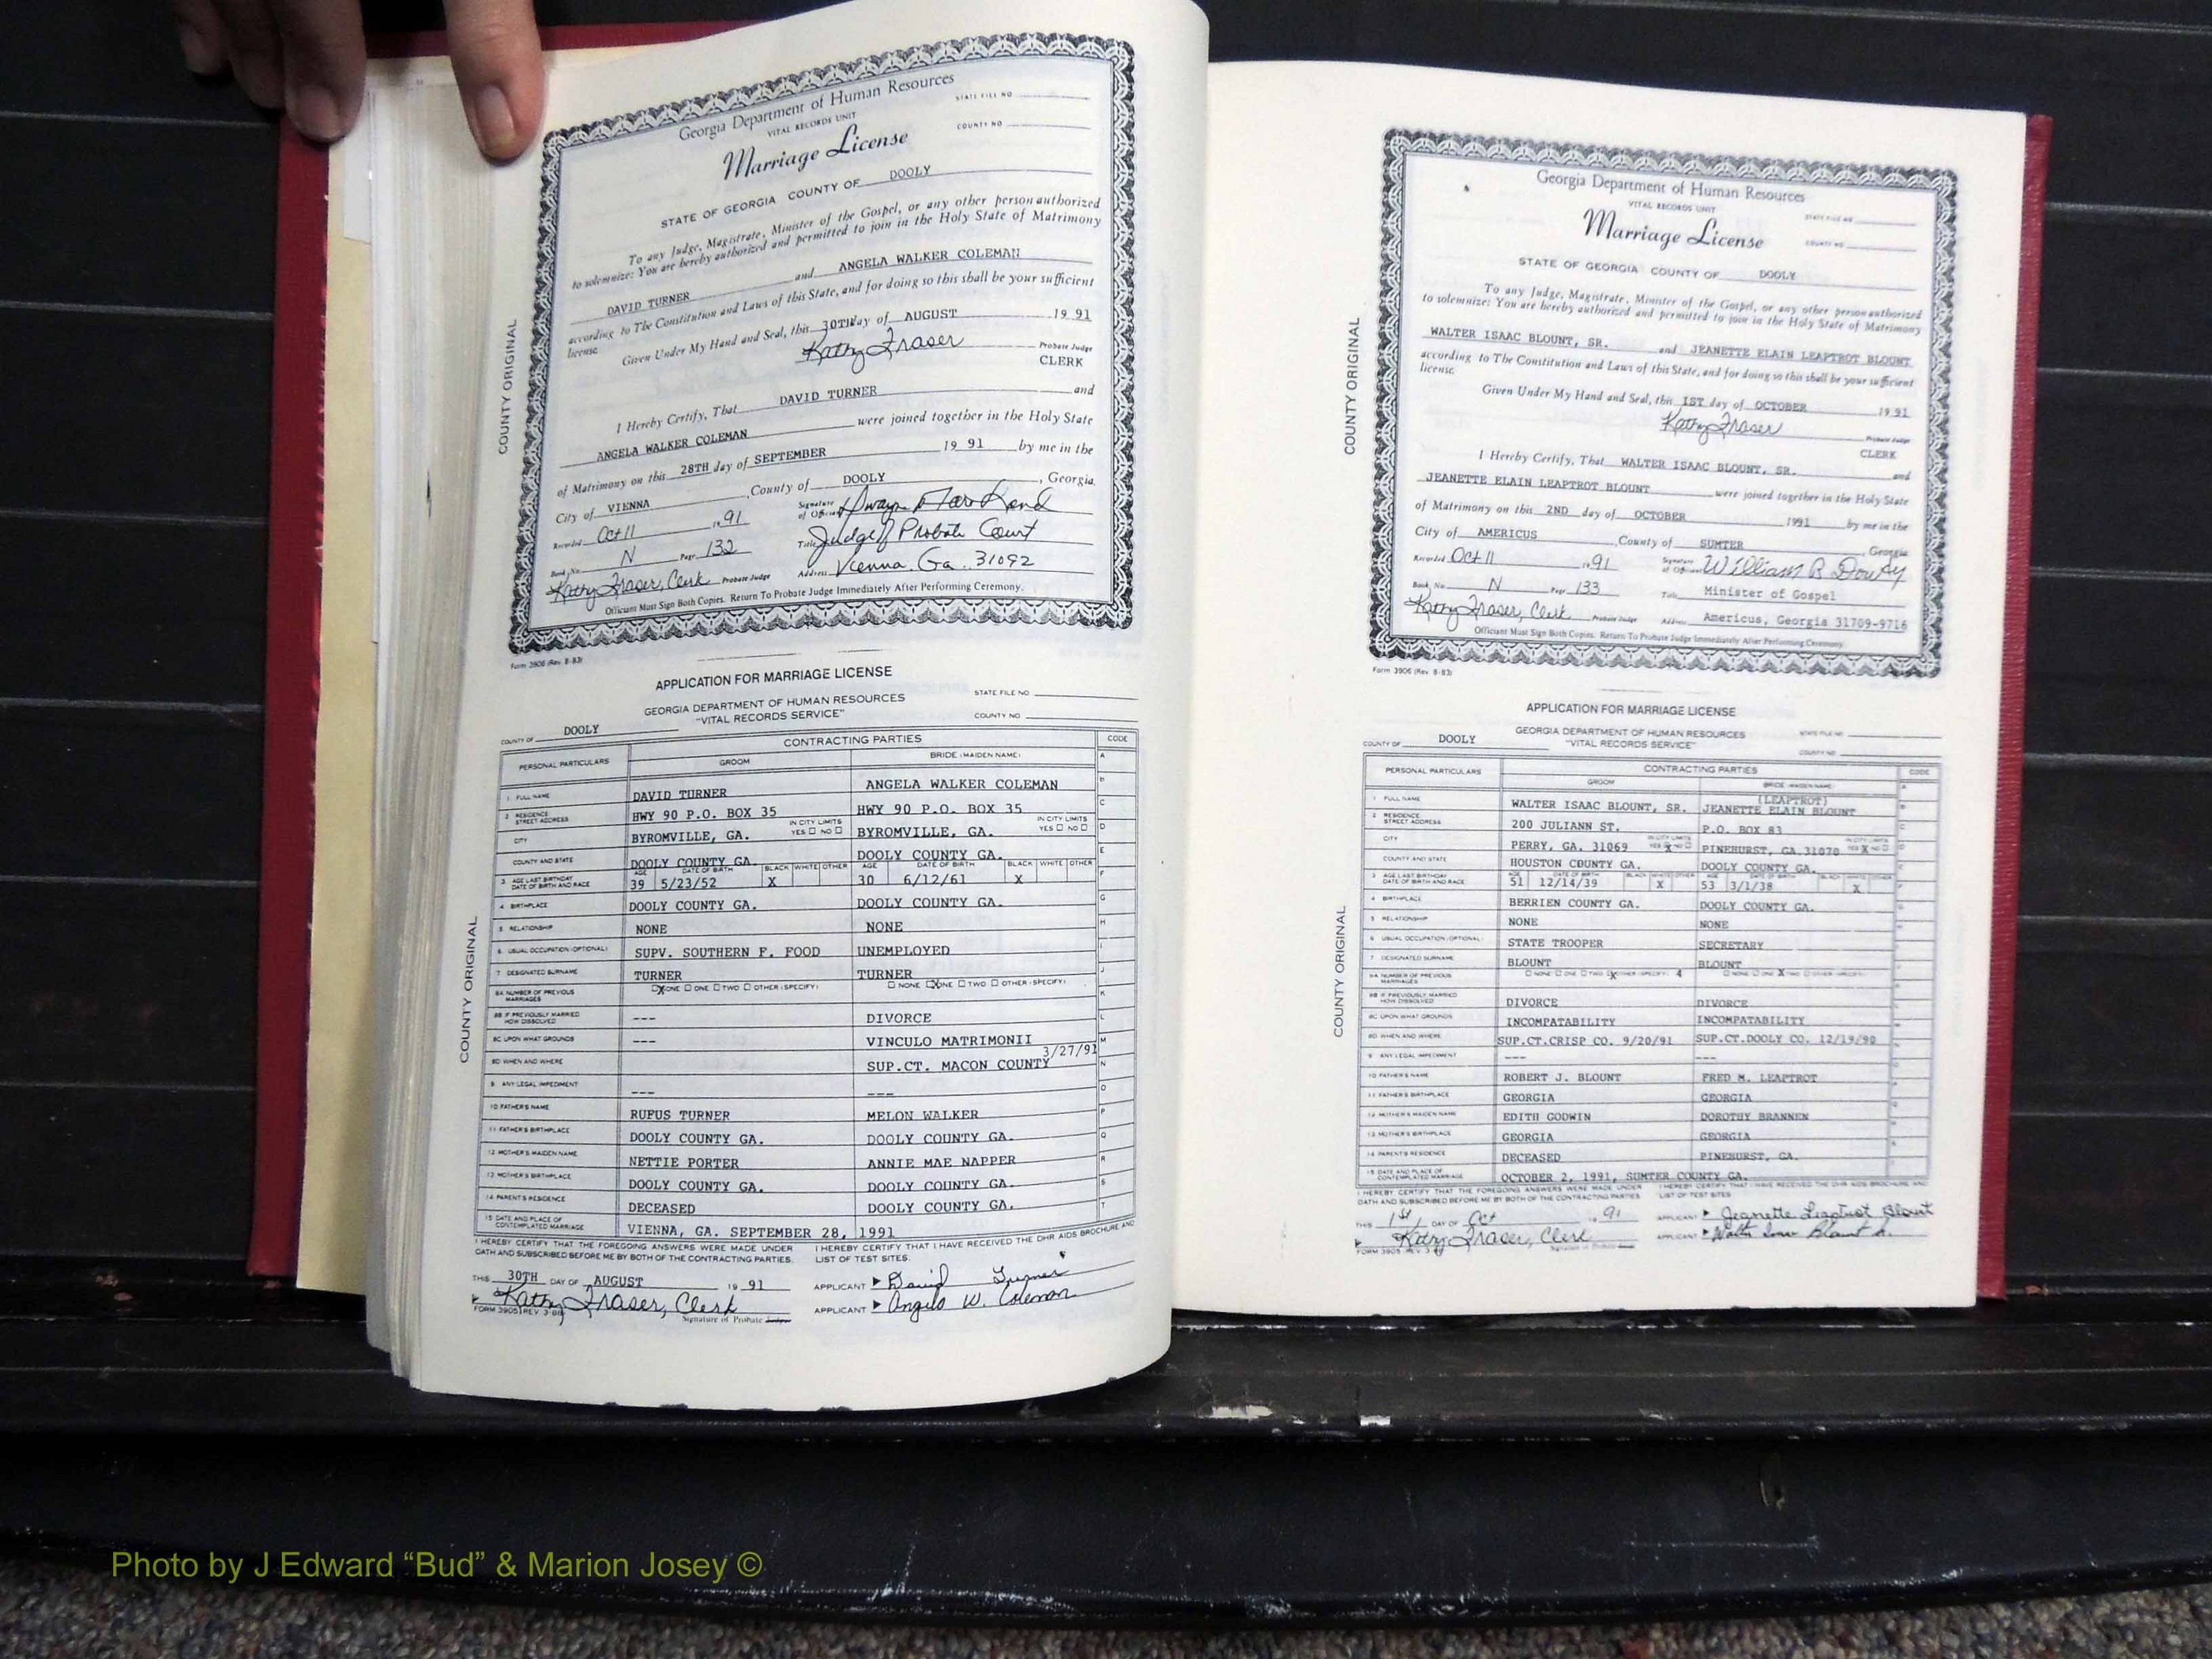 Georgia Department of Human Resources
VITAL RECORDS UNIT
STATE FILE NO
Marriage License
COUNTY NO
STATE OF GEORGIA COUNTY OF DOOLY
To any Judge, Magistrate, Minister of the Gospel, or any other person authorized
to solemnize: You are hereby authorized and permitted to join in the Holy State of Matrimony
DAVID TURNER and ANGELA WALKER COLEMAN
according to The Constitution and Laws of this State, and for doing so this shall be your sufficient
license.
Given Under My Hand and Seal, this 30TH day of AUGUST 19 91
Kathy Fraser Probate Judge
CLERK
I Hereby Certify, That DAVID TURNER and
ANGELA WALKER COLEMAN were joined together in the Holy State
of Matrimony on this 28TH day of SEPTEMBER 19 91 by me in the
City of VIENNA, County of DOOLY, Georgia.
Recorded Oct 11 1991 Signature of Official
Book No. N Page 132 Title Judge of Probate Court
Kathy Fraser, Clerk Probate Judge Address Vienna, Ga. 31092
Officiant Must Sign Both Copies. Return To Probate Judge Immediately After Performing Ceremony.
COUNTY ORIGINAL
Form 3906 (Rev. 8-83)
APPLICATION FOR MARRIAGE LICENSE
GEORGIA DEPARTMENT OF HUMAN RESOURCES
"VITAL RECORDS SERVICE"
STATE FILE NO
COUNTY NO
COUNTY OF DOOLY
PERSONAL PARTICULARS CONTRACTING PARTIES CODE
GROOM BRIDE (MAIDEN NAME)
1 FULL NAME DAVID TURNER ANGELA WALKER COLEMAN
2 RESIDENCE STREET ADDRESS HWY 90 P.O. BOX 35 HWY 90 P.O. BOX 35
CITY BYROMVILLE, GA. IN CITY LIMITS YES NO BYROMVILLE, GA. IN CITY LIMITS YES NO
COUNTY AND STATE DOOLY COUNTY GA. DOOLY COUNTY GA.
3 AGE LAST BIRTHDAY DATE OF BIRTH AND RACE AGE 39 DATE OF BIRTH 5/23/52 BLACK X WHITE OTHER AGE 30 DATE OF BIRTH 6/12/61 BLACK X WHITE OTHER
4 BIRTHPLACE DOOLY COUNTY GA. DOOLY COUNTY GA.
5 RELATIONSHIP NONE NONE
6 USUAL OCCUPATION (OPTIONAL) SUPV. SOUTHERN F. FOOD UNEMPLOYED
7 DESIGNATED SURNAME TURNER TURNER
8A NUMBER OF PREVIOUS MARRIAGES X NONE ONE TWO OTHER (SPECIFY) NONE X ONE TWO OTHER (SPECIFY)
8B IF PREVIOUSLY MARRIED HOW DISSOLVED --- DIVORCE
8C UPON WHAT GROUNDS --- VINCULO MATRIMONII
8D WHEN AND WHERE SUP.CT. MACON COUNTY 3/27/91
9 ANY LEGAL IMPEDIMENT --- ---
10 FATHER'S NAME RUFUS TURNER MELON WALKER
11 FATHER'S BIRTHPLACE DOOLY COUNTY GA. DOOLY COUNTY GA.
12 MOTHER'S MAIDEN NAME NETTIE PORTER ANNIE MAE NAPPER
13 MOTHER'S BIRTHPLACE DOOLY COUNTY GA. DOOLY COUNTY GA.
14 PARENT'S RESIDENCE DECEASED DOOLY COUNTY GA.
15 DATE AND PLACE OF CONTEMPLATED MARRIAGE VIENNA, GA. SEPTEMBER 28, 1991
I HEREBY CERTIFY THAT THE FOREGOING ANSWERS WERE MADE UNDER
OATH AND SUBSCRIBED BEFORE ME BY BOTH OF THE CONTRACTING PARTIES.
I HEREBY CERTIFY THAT I HAVE RECEIVED THE DHR AIDS BROCHURE AND
LIST OF TEST SITES.
THIS 30TH DAY OF AUGUST 19 91 APPLICANT David Turner
Kathy Fraser, Clerk APPLICANT Angela W. Coleman
FORM 3905 (REV. 3-88) Signature of Probate Judge
COUNTY ORIGINAL
Georgia Department of Human Resources
VITAL RECORDS UNIT
STATE FILE NO
Marriage License
COUNTY NO
STATE OF GEORGIA COUNTY OF DOOLY
To any Judge, Magistrate, Minister of the Gospel, or any other person authorized
to solemnize: You are hereby authorized and permitted to join in the Holy State of Matrimony
WALTER ISAAC BLOUNT, SR. and JEANETTE ELAIN LEAPTROT BLOUNT
according to The Constitution and Laws of this State, and for doing so this shall be your sufficient
license.
Given Under My Hand and Seal, this 1ST day of OCTOBER 19 91
Kathy Fraser Probate Judge
CLERK
I Hereby Certify, That WALTER ISAAC BLOUNT, SR. and
JEANETTE ELAIN LEAPTROT BLOUNT were joined together in the Holy State
of Matrimony on this 2ND day of OCTOBER 1991 by me in the
City of AMERICUS, County of SUMTER, Georgia
Recorded Oct 11 1991 Signature of Official William B Dowdy
Book No. N Page 133 Title Minister of Gospel
Kathy Fraser, Clerk Probate Judge Address Americus, Georgia 31709-9716
Officiant Must Sign Both Copies. Return To Probate Judge Immediately After Performing Ceremony.
COUNTY ORIGINAL
Form 3906 (Rev. 8-83)
APPLICATION FOR MARRIAGE LICENSE
GEORGIA DEPARTMENT OF HUMAN RESOURCES
"VITAL RECORDS SERVICE"
STATE FILE NO
COUNTY NO
COUNTY OF DOOLY
PERSONAL PARTICULARS CONTRACTING PARTIES CODE
GROOM BRIDE (MAIDEN NAME)
1 FULL NAME WALTER ISAAC BLOUNT, SR. (LEAPTROT) JEANETTE ELAIN BLOUNT
2 RESIDENCE STREET ADDRESS 200 JULIANN ST. P.O. BOX 83
CITY PERRY, GA. 31069 IN CITY LIMITS YES X NO PINEHURST, GA.31070 IN CITY LIMITS YES X NO
COUNTY AND STATE HOUSTON COUNTY GA. DOOLY COUNTY GA.
3 AGE LAST BIRTHDAY DATE OF BIRTH AND RACE 51 12/14/39 X 53 3/1/38 X
4 BIRTHPLACE BERRIEN COUNTY GA. DOOLY COUNTY GA.
5 RELATIONSHIP NONE NONE
6 USUAL OCCUPATION (OPTIONAL) STATE TROOPER SECRETARY
7 DESIGNATED SURNAME BLOUNT BLOUNT
8A NUMBER OF PREVIOUS MARRIAGES NONE ONE TWO X OTHER (SPECIFY) 4 NONE ONE X TWO OTHER (SPECIFY)
8B IF PREVIOUSLY MARRIED HOW DISSOLVED DIVORCE DIVORCE
8C UPON WHAT GROUNDS INCOMPATABILITY INCOMPATABILITY
8D WHEN AND WHERE SUP.CT.CRISP CO. 9/20/91 SUP.CT.DOOLY CO. 12/19/90
9 ANY LEGAL IMPEDIMENT --- ---
10 FATHER'S NAME ROBERT J. BLOUNT FRED M. LEAPTROT
11 FATHER'S BIRTHPLACE GEORGIA GEORGIA
12 MOTHER'S MAIDEN NAME EDITH GODWIN DOROTHY BRANNEN
13 MOTHER'S BIRTHPLACE GEORGIA GEORGIA
14 PARENT'S RESIDENCE DECEASED PINEHURST, GA.
15 DATE AND PLACE OF CONTEMPLATED MARRIAGE OCTOBER 2, 1991, SUMTER COUNTY GA.
I HEREBY CERTIFY THAT THE FOREGOING ANSWERS WERE MADE UNDER
OATH AND SUBSCRIBED BEFORE ME BY BOTH OF THE CONTRACTING PARTIES
I HEREBY CERTIFY THAT I HAVE RECEIVED THE DHR AIDS BROCHURE AND
LIST OF TEST SITES
THIS 1st DAY OF Oct 1991 APPLICANT Jeanette Leaptrot Blount
Kathy Fraser, Clerk APPLICANT Walter Isaac Blount Sr.
FORM 3905 (REV. 3-88) Signature of Probate
COUNTY ORIGINAL
Photo by J Edward “Bud” & Marion Josey ©